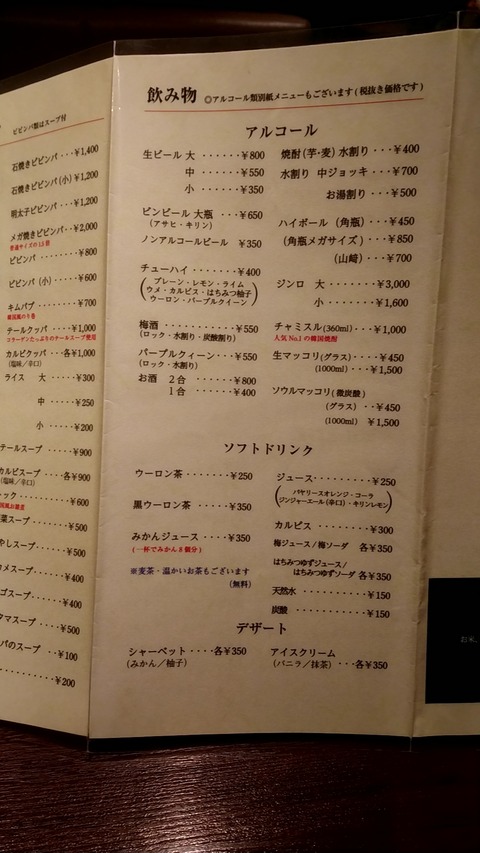 ビビンバ類はスープ付
石焼きビビンバ・・・¥1,400
石焼きビビンバ(小) ¥1,200
明太子ビビンバ・・・¥1,200
メガ焼きビビンバ・・¥2,000
普通サイズの1.5倍
ビビンバ・・・・・・・¥800
ビビンバ (小)・・・・¥600
キムパブ・・・・・・・¥700
韓国風のり巻
テールクッパ・・・・¥1,000
コラーゲンたっぷりのテールスープ使用
カルビクッパ・・・各¥1,000
(塩味／辛口)
ライス 大・・・・¥300
中・・・・¥250
小・・・・¥200
テールスープ・・・・¥900
カルビスープ・・・各¥900
(塩味／辛口)
ック・・・・・・・¥600
国風お雑煮
菜スープ・・・・・¥500
やしスープ・・・・¥500
カメスープ・・・・¥400
ゴスープ・・・・・¥400
タマスープ・・・・¥500
パのスープ・・・¥100
・・・・・・・¥200
飲み物 ◎アルコール類別紙メニューもございます(税抜き価格です)
アルコール
生ビール 大・・・・・・¥800
中・・・・・・¥550
小・・・・・・¥350
ビンビール 大瓶・・・¥650
(アサヒ・キリン)
ノンアルコールビール ¥350
チューハイ・・・・・・・¥400
(プレーン・レモン・ライム
ウメ・カルピス・はちみつ柚子
ウーロン・パープルクィーン)
梅酒・・・・・・・・・¥550
(ロック・水割り・炭酸割り)
パープルクィーン・・・¥550
(ロック・水割り)
お酒 2合・・・・・・¥800
1合・・・・・・¥400
焼酎(芋・麦)水割り・・¥400
水割り 中ジョッキ・・・¥700
お湯割り・・・¥500
ハイボール (角瓶)・・・¥450
(角瓶メガサイズ)・・・¥850
(山崎)・・・¥700
ジンロ 大・・・・・・¥3,000
小・・・・・・¥1,600
チャミスル(360ml)・・・¥1,000
人気No.1の韓国焼酎
生マッコリ(グラス)・・・・¥450
(1000ml)・・・¥1,500
ソウルマッコリ(微炭酸)
(グラス)・・¥450
(1000ml) ¥1,500
ソフトドリンク
ウーロン茶・・・・・・・¥250
黒ウーロン茶・・・・・¥350
みかんジュース・・・・¥350
(一杯でみかん8個分)
※麦茶・温かいお茶もございます
(無料)
ジュース・・・・・・・・・¥250
(バヤリースオレンジ・コーラ
ジンジャーエール(辛口)・キリンレモン)
カルピス・・・・・・・¥300
梅ジュース/梅ソーダ 各¥350
はちみつゆずジュース/
はちみつゆずソーダ 各¥350
天然水・・・・・・・・¥150
炭酸・・・・・・・・・¥150
デザート
シャーベット・・・・各¥350
(みかん／柚子)
アイスクリーム
(バニラ／抹茶)・・・各¥350
お米